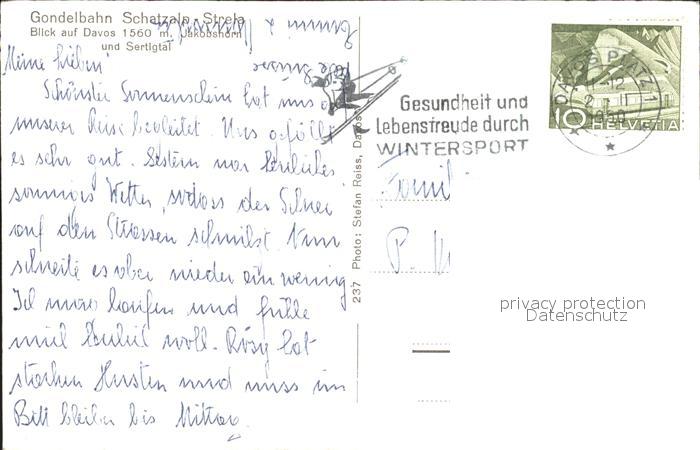 Gondelbahn Schatzalp - Strela
Blick auf Davos 1560 m, Jakobshorn
und Sertigtal
Meine Lieben
Schönster Sonnenschein hat uns auf
unserer Reise begleitet. Uns gefällt
es sehr gut. Gestern war herrliches
sonniges Wetter, sodass der Schnee
auf den Strassen schmilzt. Nun
schneite es aber wieder ein wenig
Ich muss laufen und fühle
mich wohl. Rösy hat
starken Husten und muss im
Bett bleiben bis Mittag.
Grüsse
237 Photo: Stefan Reiss, Davos
Gesundheit und
Lebensfreude durch
WINTERSPORT
DAVOS PLATZ 1
10 HELVETIA
Famil
P.
privacy protection
Datenschutz